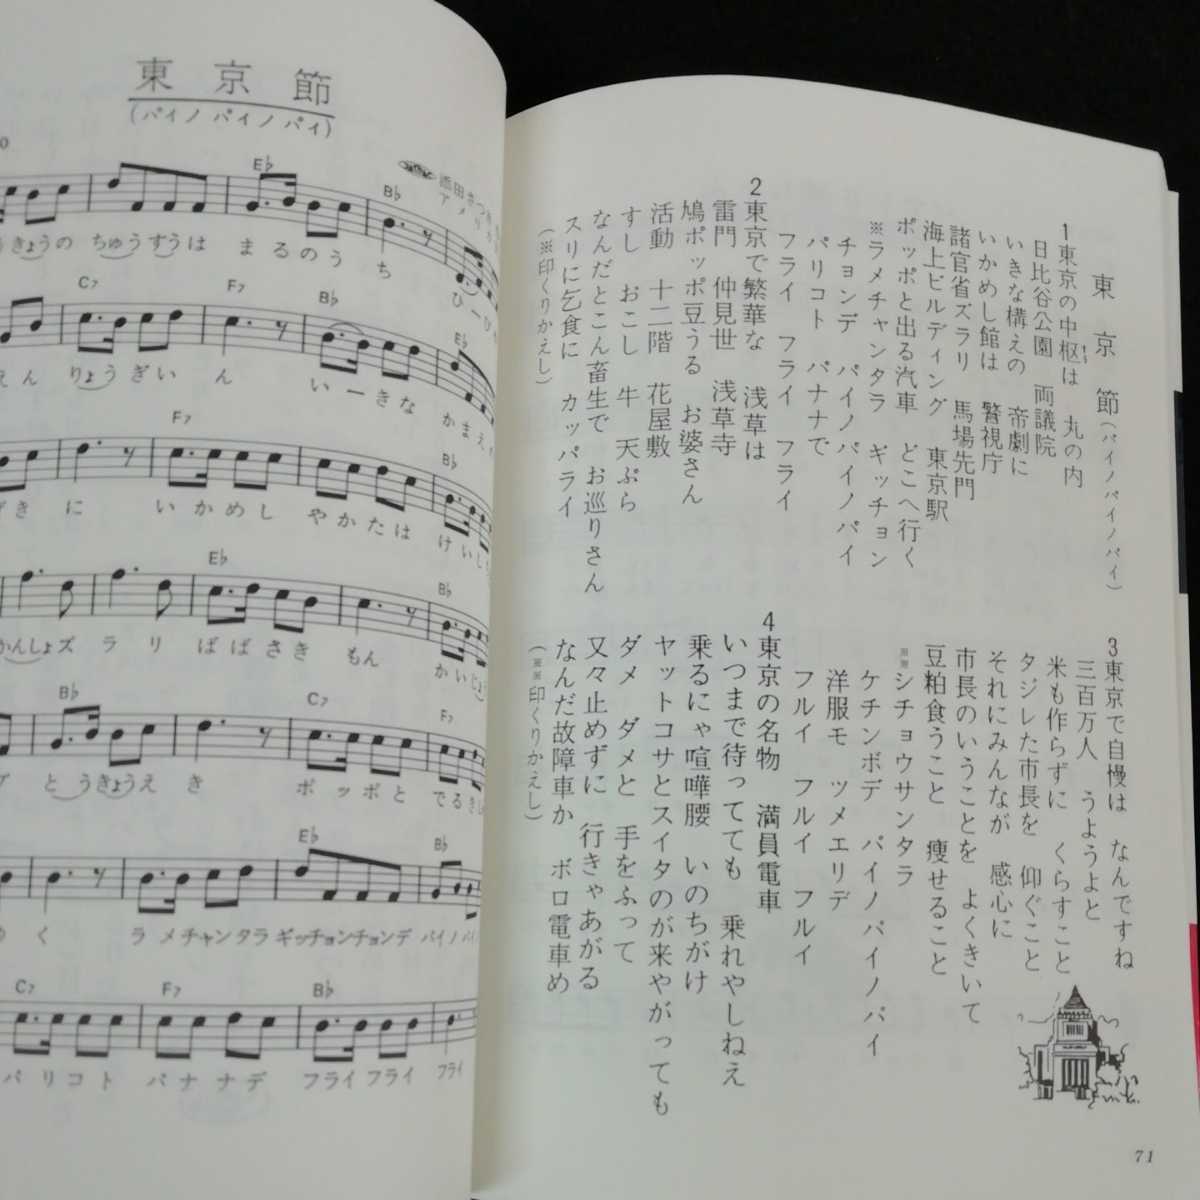 東京節
(パイノ パイノ パイ)
添田さつき
E♭
B♭
きょうの ちゅうすうは まるのうち
C₇ F₇ B♭ E♭
えん りょうぎいん いーきな かまえ
F₇ B♭
きに いかめし やかたは けいし
E♭ B♭
かんしょズラリ ばばさきもん かいじょう
B♭ C₇ F₇
とうきょうえき ポッポと でるきし
E♭ B♭
く ラメチャンタラギッチョンチョンデ パイノパイ
C₇ F₇ B♭
パリコト バナナデ フライ フライ フライ
東京節(パイノパイノパイ)
1 東京の中枢は 丸の内
日比谷公園 両議院
いきな構えの 帝劇に
いかめし館は 警視庁
諸官省ズラリ 馬場先門
海上ビルディング 東京駅
ポッポと出る汽車 どこへ行く
※ラメチャンタラ ギッチョン
チョンデ パイノパイノパイ
パリコト バナナで
フライ フライ フライ
2 東京で繁華な 浅草は
雷門 仲見世 浅草寺
鳩ポッポ豆うる お婆さん
活動 十二階 花屋敷
すし おこし 牛 天ぷら
なんだとこん畜生で お巡りさん
スリに乞食に カッパライ
(※印くりかえし)
3 東京で自慢は なんですね
三百万人 うようよと
米も作らずに くらすこと
タジレた市長を 仰ぐこと
それにみんなが 感心に
市長のいうことを よくきいて
豆粕食うこと 痩せること
※※シチョウサンタラ
ケチンボデ パイノパイノパイ
洋服モ ツメエリデ
フルイ フルイ フルイ
4 東京の名物 満員電車
いつまで待ってても 乗れやしねえ
乗るにゃ喧嘩腰 いのちがけ
ヤットコサとスイタのが来やがっても
ダメ ダメと 手をふって
又々止めずに 行きゃあがる
なんだ故障車か ボロ電車め
(※※印くりかえし)
71